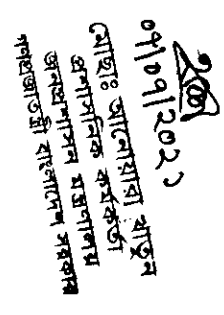 ০৭/০৭/২০২১
মোছাঃ আনোয়ারা খাতুন
প্রশাসনিক কর্মকর্তা
জনপ্রশাসন মন্ত্রণালয়
গণপ্রজাতন্ত্রী বাংলাদেশ সরকার